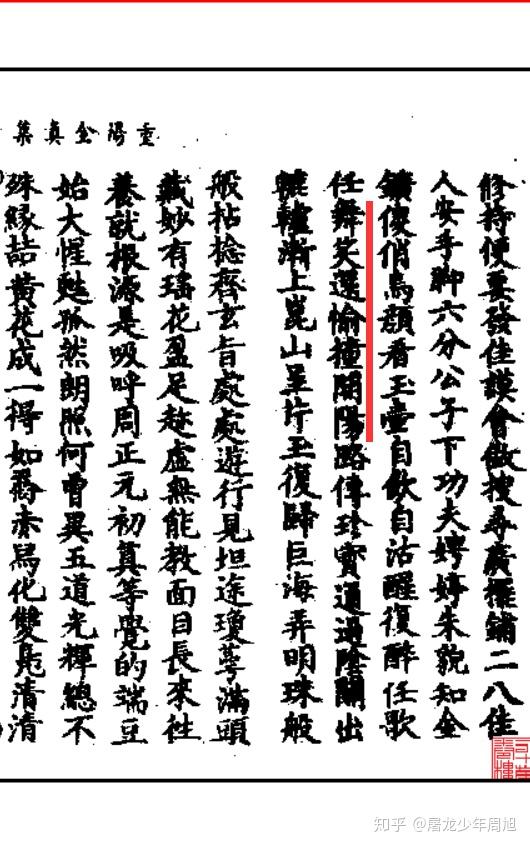 重陽全真集
修持便要發佳謨會做搜尋廣櫂鋪二八佳
人安手脚六分公子下功夫娉婷朱貌知金
鑛傻俏烏顔看玉壷自飲自沽醒復醉任歌
任舞笑還愉撞開陽路傳珍寳通過陰關出
轆轤漸上崑山呈片玉復歸巨海弄明珠般
般拈捻齊玄旨處處遊行見坦途瓊蕚滿頭
藏妙有瑶花盈足趂虛無能教面目長來往
養就根源是吸呼周正元初算等覺的端豆
始大惺甦孤然朗照何曾異五道光輝總不
殊緣詰黄花成一得如赤烏化雙鳬清清
知乎 @屠龙少年周旭